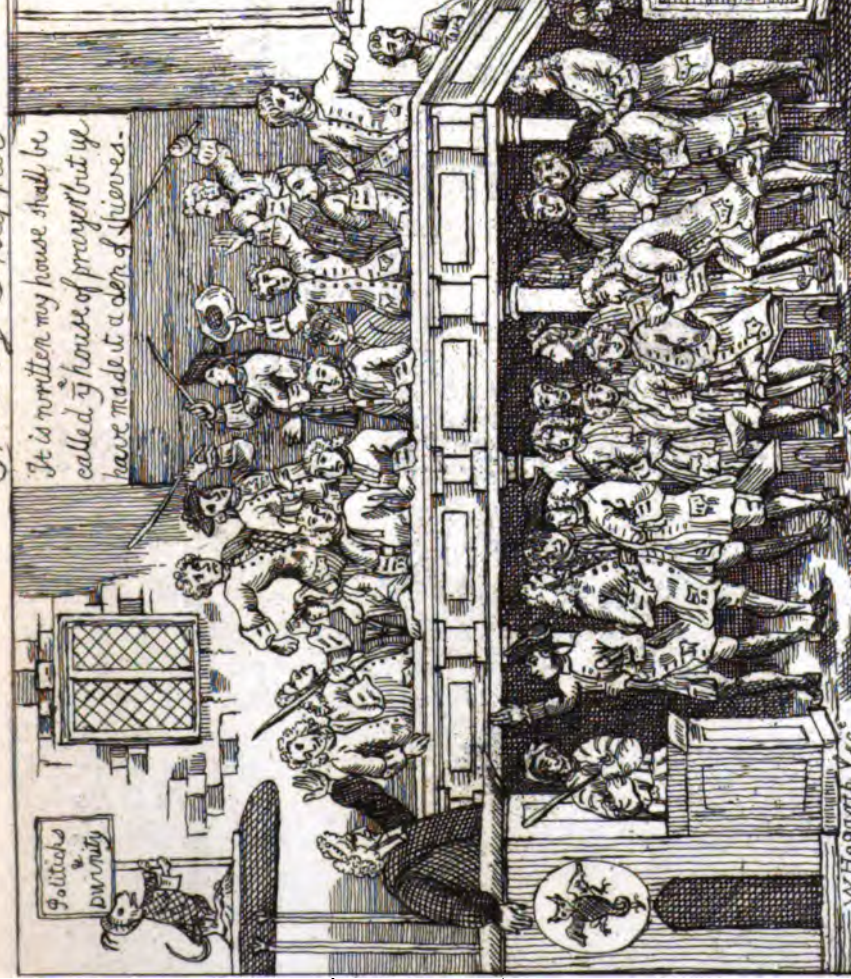 It is written my house shall be
called ỹ house of prayer but ye
have made it a den of thieves-
Politicks
&
Divinity
W Hogarth